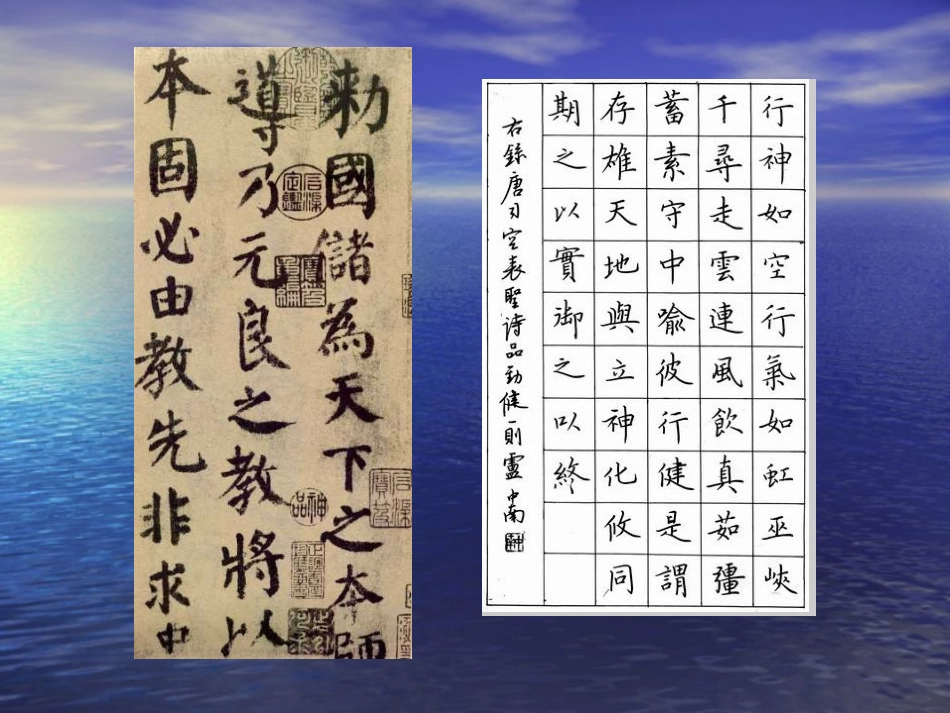 勅國儲為天下之本師
導乃元良之教將以
本固必由教先非求中
神品
行神如空行氣如虹巫峽
千尋走雲連風飲真茹彊
蓄素守中喻彼行健是謂
存雄天地與立神化攸同
期之以實御之以終
右錄唐司空表聖诗品勁健一則盧中南